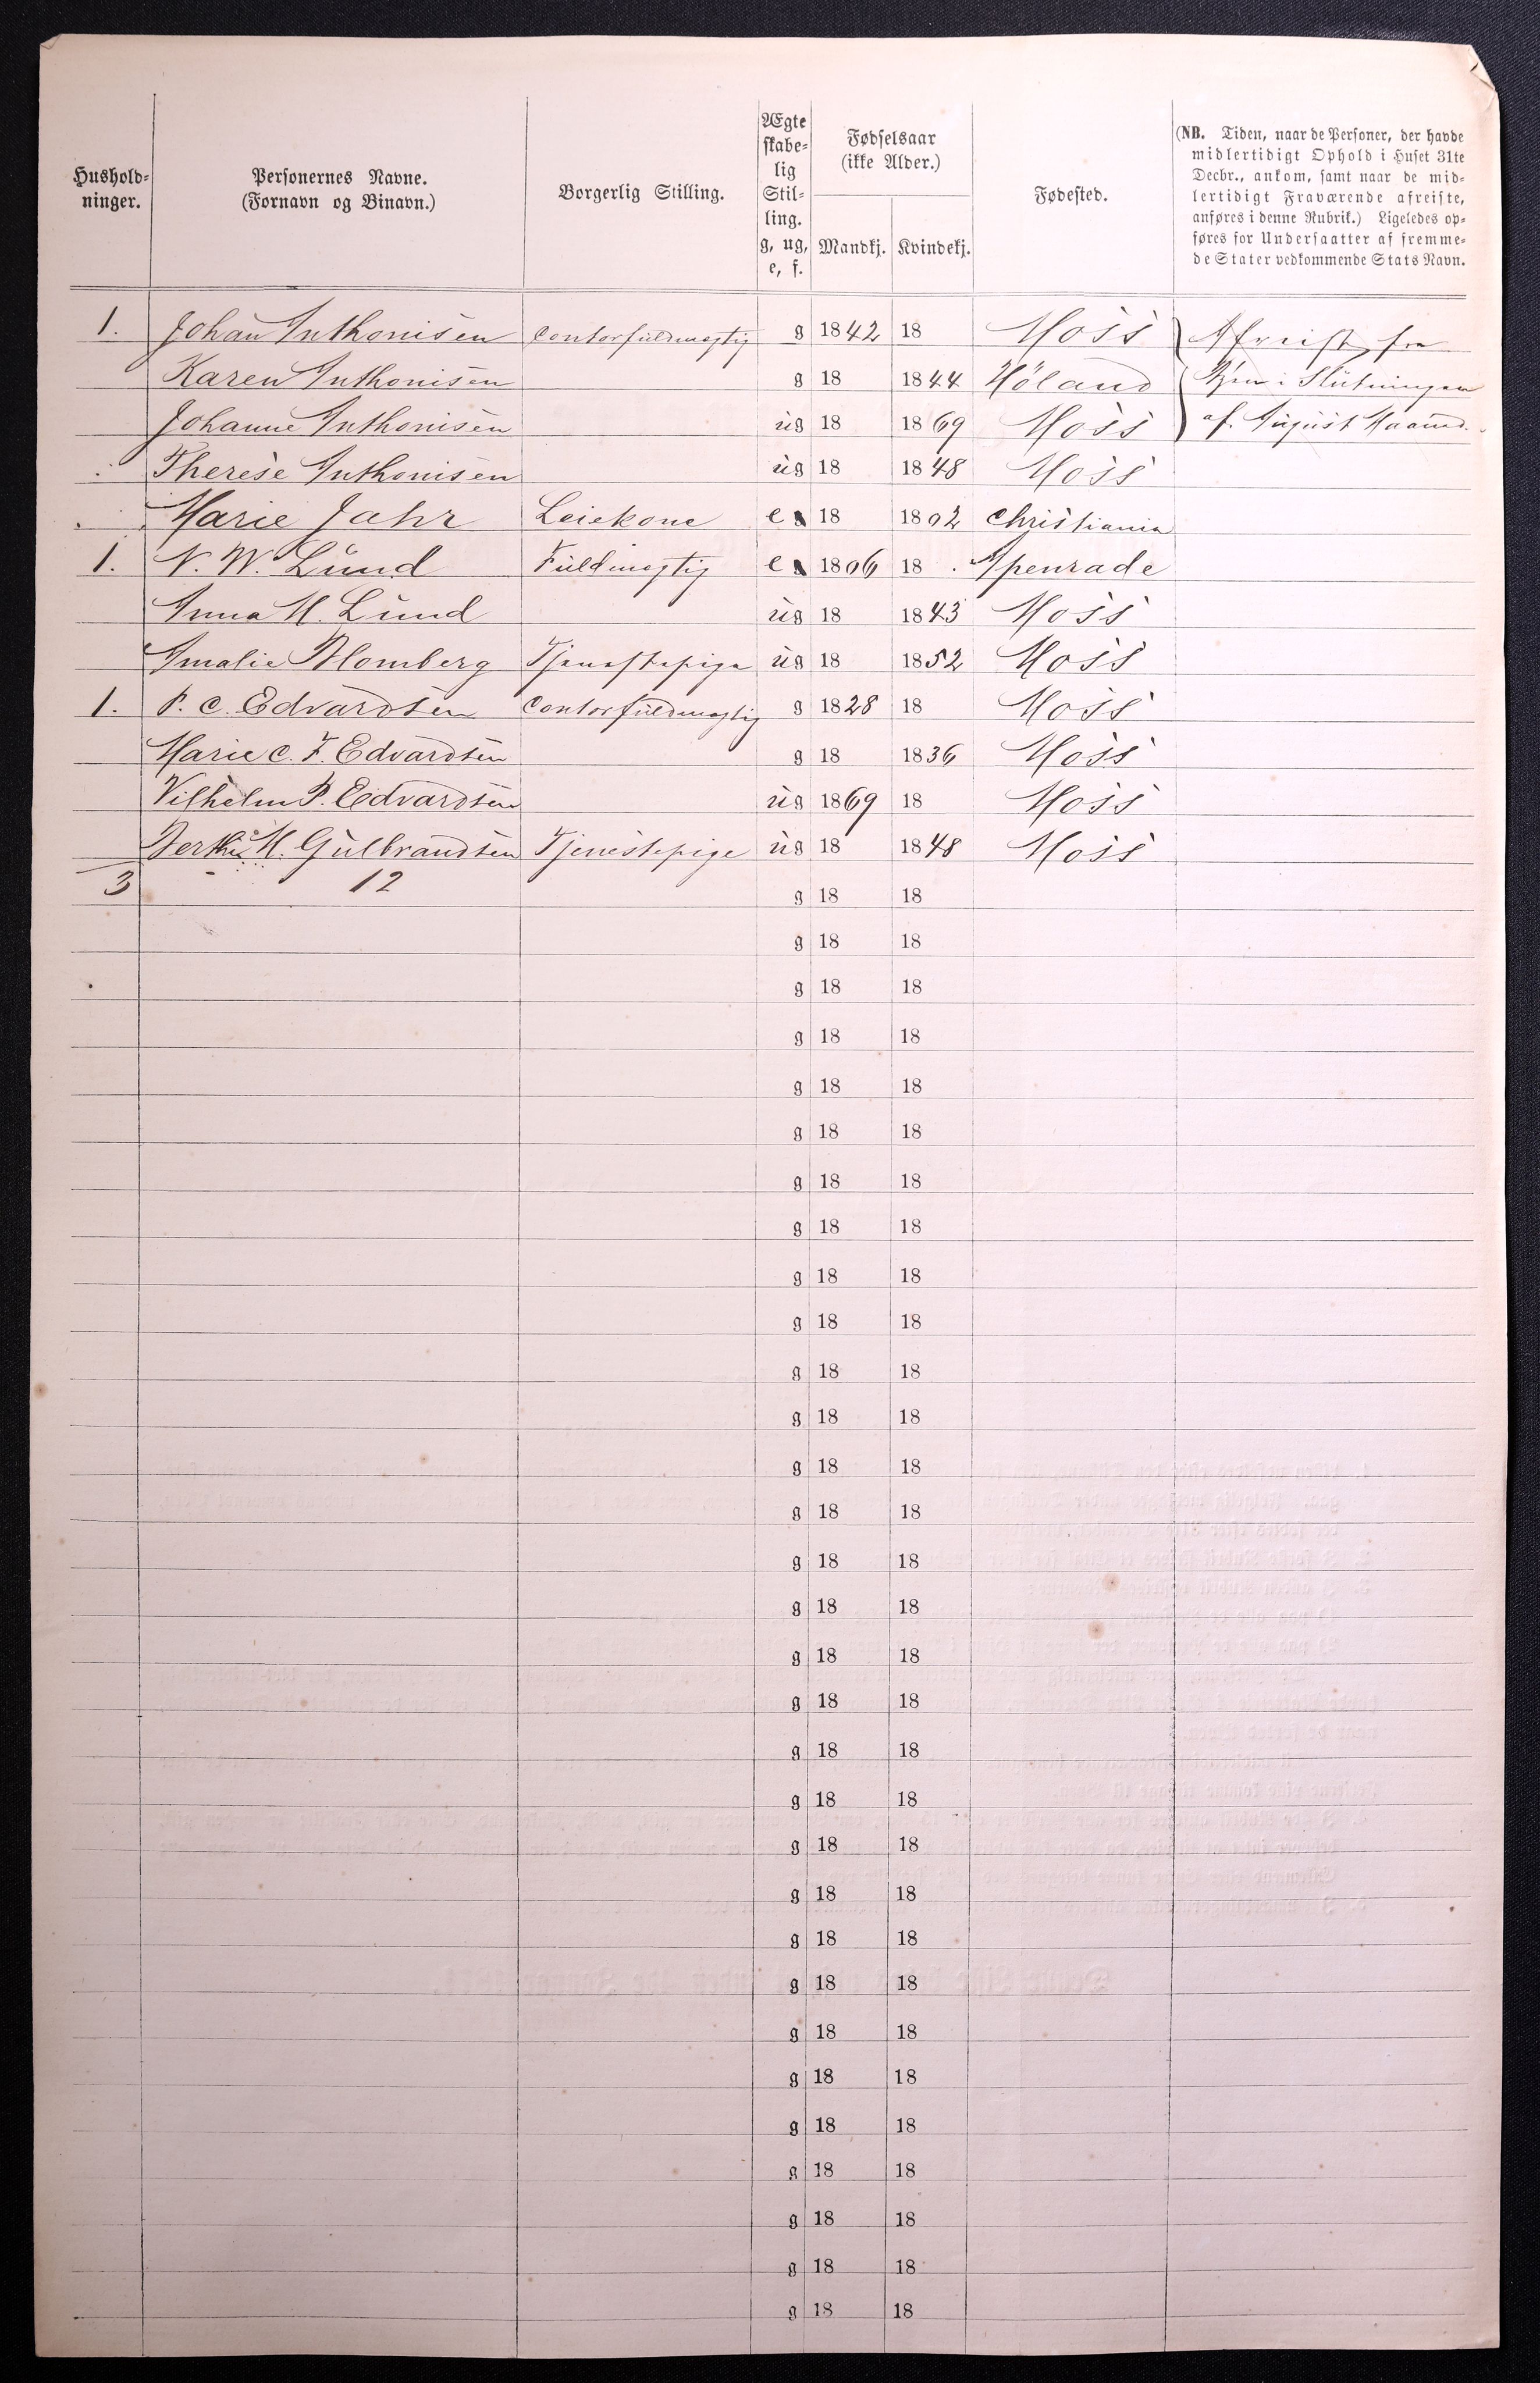 Hushold-
ninger.
Personernes Navne.
(Fornavn og Binavn.)
Borgerlig Stilling.
Ægte
skabe-
lig
Stil-
ling.
g, ug,
e, f.
Fødselsaar
(ikke Alder.)
Mandkj. Kvindekj.
Fødested.
(NB. Tiden, naar de Personer, der havde
midlertidigt Ophold i Huset 31te
Decbr., ankom, samt naar de mid-
lertidigt Fraværende afreiste,
anføres i denne Rubrik.) Ligeledes op-
føres for Undersaatter af fremme-
de Stater vedkommende Stats Navn.
1. Johan Anthonisen Contorfuldmegtig g 1842 18 Moss Afreist fra
Karen Anthonisen g 18 1844 Høland Byen i Slutningen
Johanne Anthonisen ug 18 1869 Moss af August Maaned.
Therese Anthonisen ug 18 1848 Moss
Marie Jahr Leiekone e 18 1802 Christiania
1. N. W. Lund Fuldmegtig e 1806 18 Apenrade
Anna M. Lund ug 18 1843 Moss
Amalie Blomberg Tjenestepige ug 18 1852 Moss
1. P. C. Edvardsen Contorfuldmegtig g 1828 18 Moss
Marie C. F. Edvardsen g 18 1836 Moss
Vilhelm P. Edvardsen ug 1869 18 Moss
M. Gulbrandsen Tjenestepige ug 18 1848 Moss
3 12 g 18 18
g 18 18
g 18 18
g 18 18
g 18 18
g 18 18
g 18 18
g 18 18
g 18 18
g 18 18
g 18 18
g 18 18
g 18 18
g 18 18
g 18 18
g 18 18
g 18 18
g 18 18
g 18 18
g 18 18
g 18 18
g 18 18
g 18 18
g 18 18
g 18 18
g 18 18
g 18 18
g 18 18
g 18 18
g 18 18
g 18 18